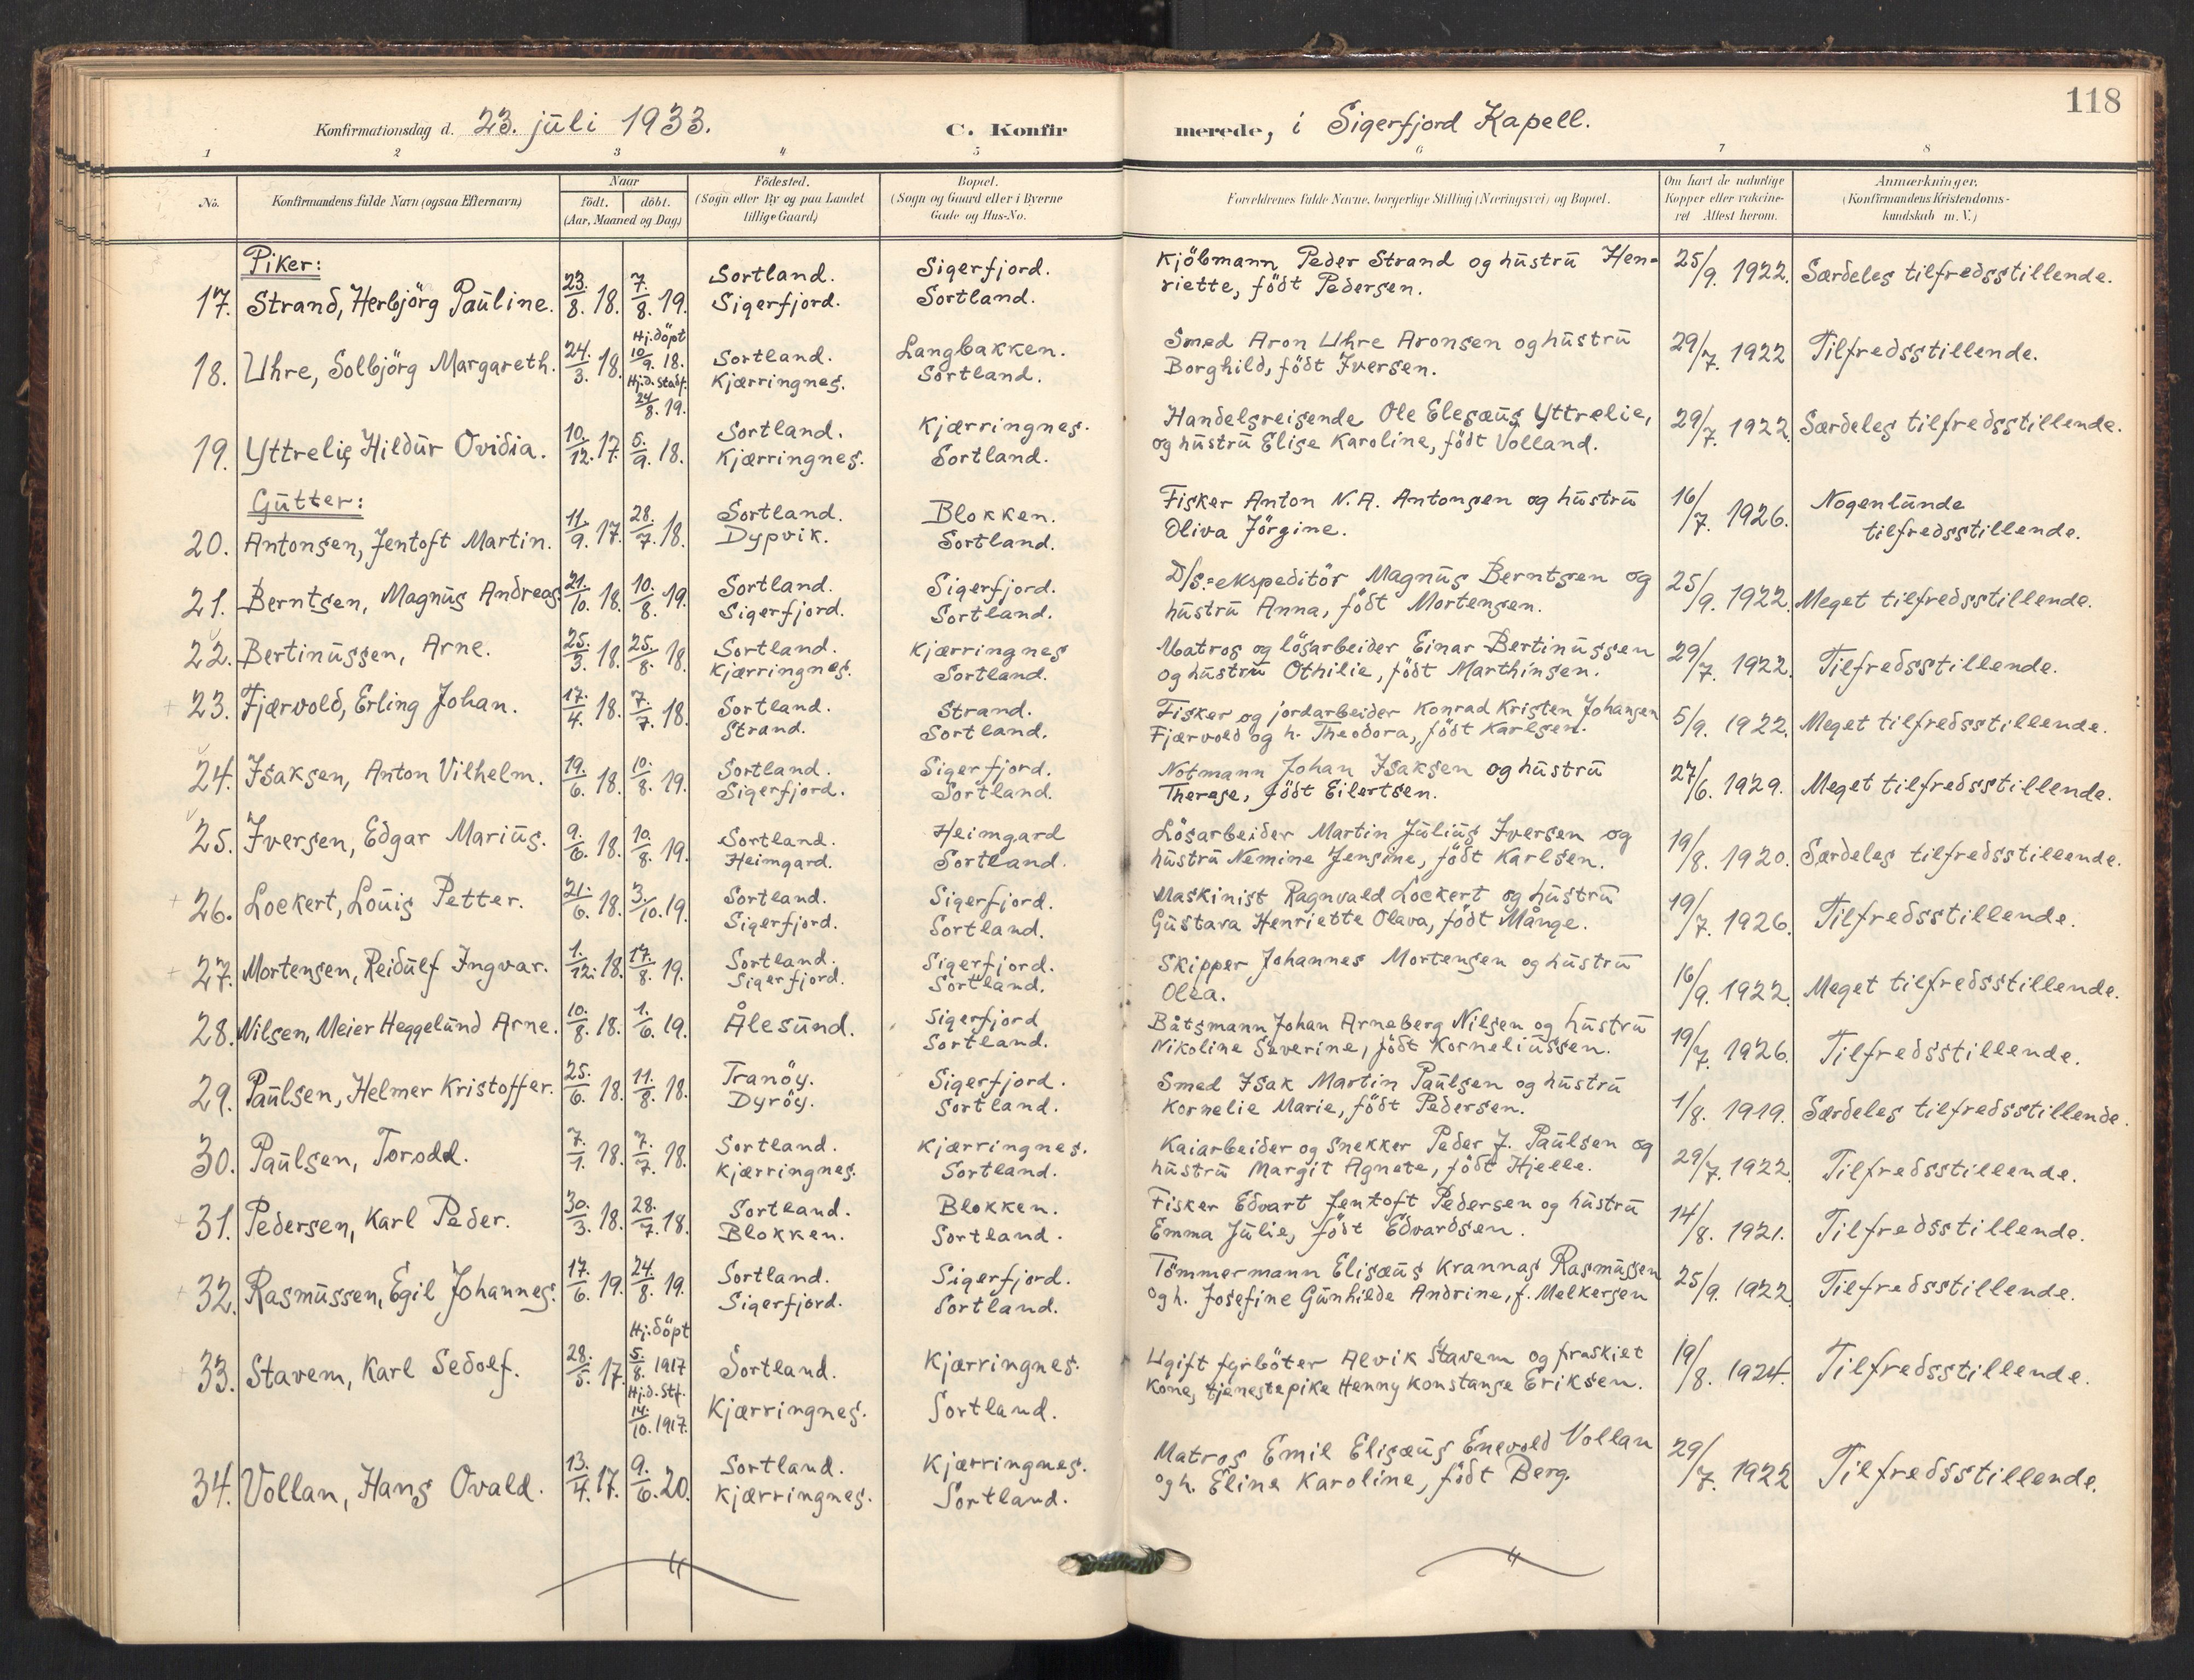 118
Konfirmationsdag d. 23. juli 1933. C. Konfirmerede, i Sigerfjord Kapell.
1 2 3 4 5 6 7 8
No. Konfirmandens fulde Navn (ogsaa Efternavn) Naar födt. döbt. (Aar, Maaned og Dag) Födested. (Sogn eller By og paa Landet tillige Gaard) Bopæl. (Sogn og Gaard eller i Byerne Gade og Hus-No. Forældrenes fulde Navne, borgerlige Stilling (Næringsvei) og Bopæl. Om havt de naturlige Kopper eller vaksineret Attest herom. Anmærkninger. (Konfirmandens Kristendomskundskab m. V.)
Piker:
17. Strand, Herbjörg Pauline. 23./8. 18. 7./8. 19. Sortland. Sigerfjord. Sigerfjord. Sortland. Kjöbmann Peder Strand og hustru Henriette, födt Pedersen. 25/9. 1922. Særdeles tilfredsstillende.
18. Uhre, Solbjörg Margareth. 24./3. 18. Hj.döpt 10/9. 18. Hj.d. stadf. 24/8. 19. Sortland. Kjærringnes. Langbakken. Sortland. Smed Aron Uhre Aronsen og hustru Borghild, födt Iversen. 29/7. 1922 Tilfredsstillende.
19. Yttrelie, Hildur Ovidia. 10./12. 17. 5./9. 18. Sortland. Kjærringnes. Kjærringnes. Sortland. Handelsreisende Ole Elesæus Yttrelie, og hustru Elise Karoline, födt Volland. 29/7. 1922. Særdeles tilfredsstillende.
Gutter:
20. Antonsen, Jentoft Martin. 11./9. 17. 28./7. 18. Sortland. Dypvik. Blokken. Sortland. Fisker Anton N.A. Antonsen og hustru Oliva Jörgine. 16/7. 1926. Nogenlunde tilfredsstillende.
21. Berntsen, Magnus Andreas 21./10. 18. 10./8. 19. Sortland. Sigerfjord. Sigerfjord. Sortland. D/S.=ekspeditör Magnus Berntsen og hustru Anna, födt Mortensen. 25/9. 1922. Meget tilfredsstillende.
22. Bertinussen, Arne. 25./3. 18. 25./8. 18. Sortland. Kjærringnes. Kjærringnes Sortland. Matros og lösarbeider Einar Bertinussen og hustru Othilie, födt Marthinsen. 29/7. 1922. Tilfredsstillende.
23. Fjærvold, Erling Johan. 17./4. 18. 7./7. 18. Sortland. Strand. Strand. Sortland. Fisker og jordarbeider Konrad Kristen Johansen Fjærvold og h. Theodora, födt Karlsen. 5/9. 1922. Meget tilfredsstillende.
24. Isaksen, Anton Vilhelm. 19./6. 18. 10./8. 19. Sortland. Sigerfjord. Sigerfjord. Sortland. Notmann Johan Isaksen og hustru Therese, födt Eilertsen. 27/6. 1929. Meget tilfredsstillende.
25. Iversen, Edgar Marius. 9./6. 18. 10./8. 19. Sortland. Heimgard. Heimgard Sortland. Lösarbeider Martin Julius Iversen og hustru Nemine Jensine, födt Karlsen. 19/8. 1920. Særdeles tilfredsstillende.
26. Lockert, Louis Petter. 21./6. 18. 3./10. 19. Sortland. Sigerfjord. Sigerfjord. Sortland. Maskinist Ragnvald Lockert og hustru Gustava Henriette Olava, födt Månge. 19/7. 1926. Tilfredsstillende.
27. Mortensen, Reidulf Ingvar. 1./12. 18. 17./8. 19. Sortland. Sigerfjord. Sigerfjord. Sortland. Skipper Johannes Mortensen og hustru Olea. 16/9. 1922. Meget tilfredsstillende.
28. Nilsen, Meier Heggelund Arne. 10./8. 18. 1./6. 19. Ålesund. Sigerfjord Sortland. Båtsmann Johan Arneberg Nilsen og hustru Nikoline Severine, födt Korneliussen. 19/7. 1926. Tilfredsstillende.
29. Paulsen, Helmer Kristoffer. 25./6. 18. 11./8. 18. Tranöy. Dyröy. Sigerfjord. Sortland. Smed Isak Martin Paulsen og hustru Kornelie Marie, födt Pedersen. 1/8. 1919. Særdeles tilfredsstillende.
30. Paulsen, Torodd. 7./1. 18. 7./7. 18. Sortland. Kjærringnes. Kjærringnes. Sortland. Kaiarbeider og snekker Peder J. Paulsen og hustru Margit Agnete, födt Hjelle. 29/7. 1922. Tilfredsstillende.
31. Pedersen, Karl Peder. 30./3. 18. 28./7. 18. Sortland. Blokken. Blokken. Sortland. Fisker Edvart Jentoft Pedersen og hustru Emma Julie, födt Edvardsen. 14/8. 1921. Tilfredsstillende.
32. Rasmussen, Egil Johannes. 17./6. 19. 24./8. 19. Sortland. Sigerfjord. Sigerfjord. Sortland. Tömmermann Elisæus Krannas Rasmussen og h. Josefine Gunhilde Andrine, f. Melkersen 25/9. 1922. Tilfredsstillende.
33. Stavem, Karl Sedolf. 28./5. 17. Hj.döpt 5./8. 1917 Hj.d. Stf. 14./10. 1917. Sortland. Kjærringnes. Kjærringnes. Sortland. Ugift fyrböter Alvik Stavem og fraskilt kone, tjenestepike Henny Konstanse Eriksen. 19/8. 1924. Tilfredsstillende.
34. Vollan, Hans Ovald. 13./4. 17. 9./6. 20. Sortland. Kjærringnes. Kjærringnes. Sortland. Matros Emil Elisæus Enevold Vollan og h. Eline Karoline, födt Berg. 29/7. 1922 Tilfredsstillende.